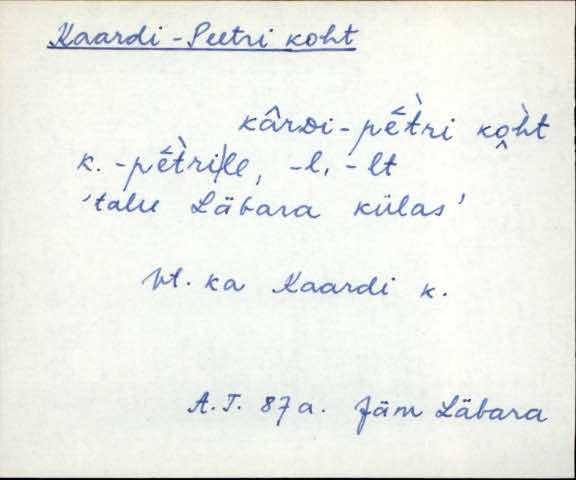 Kaardi-Peetri koht
kârdi-pētri koht
k. -pētrille, -l, -lt
'talu Läbara külas'
vt. ka Kaardi k.
A.T. 87 a. Jäm Läbara